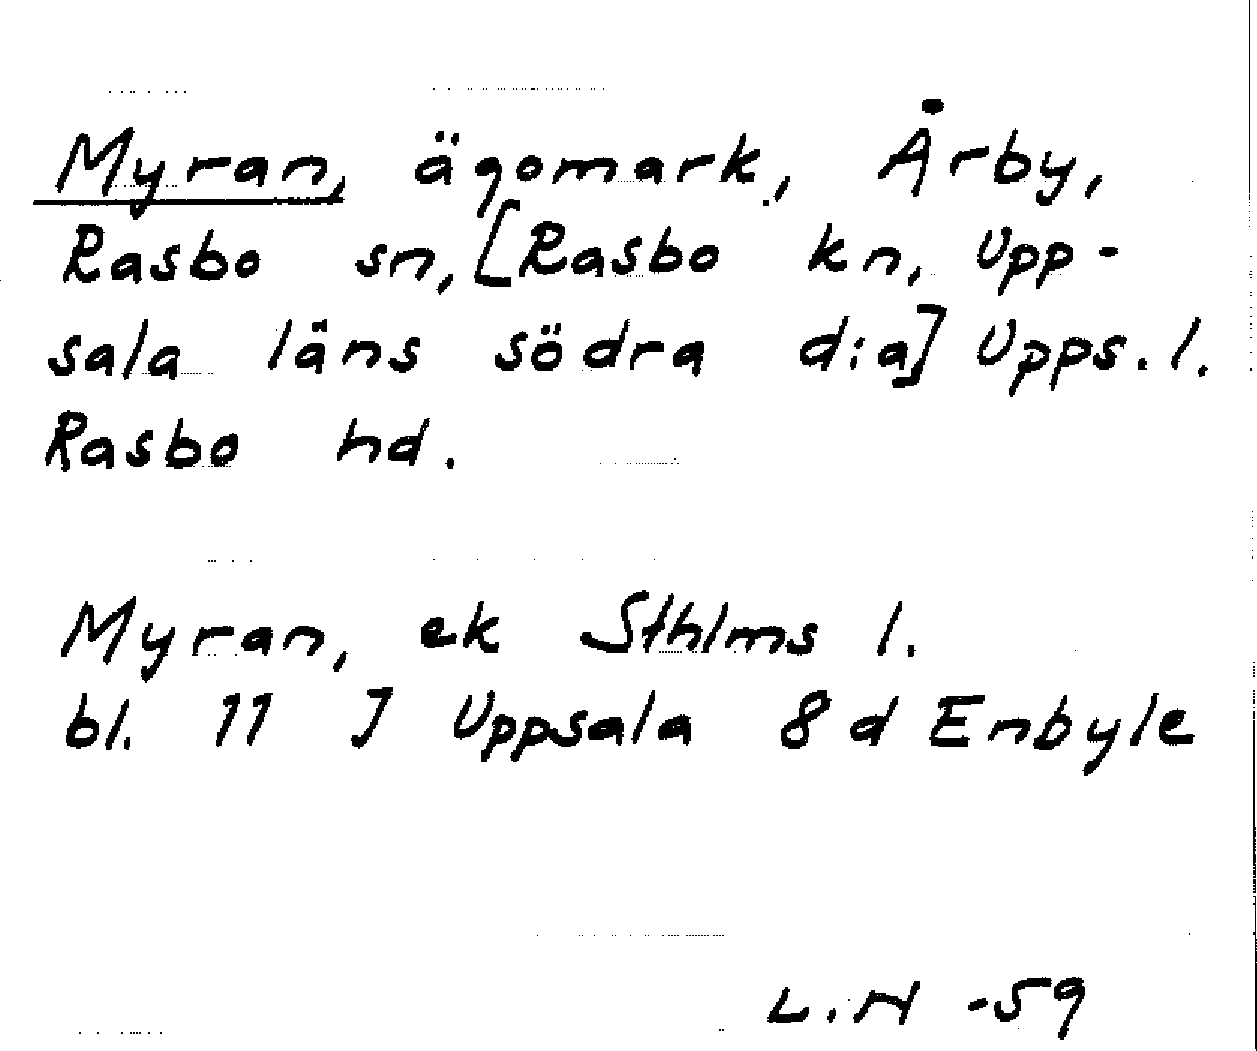 Myran, ägomark, Årby,
Rasbo sn, [Rasbo kn, Upp-
sala läns södra d:a] Upps. l.
Rasbo hd.
Myran, ek Sthlms l.
bl. 11 J Uppsala 8 d Enbyle
L. H -59